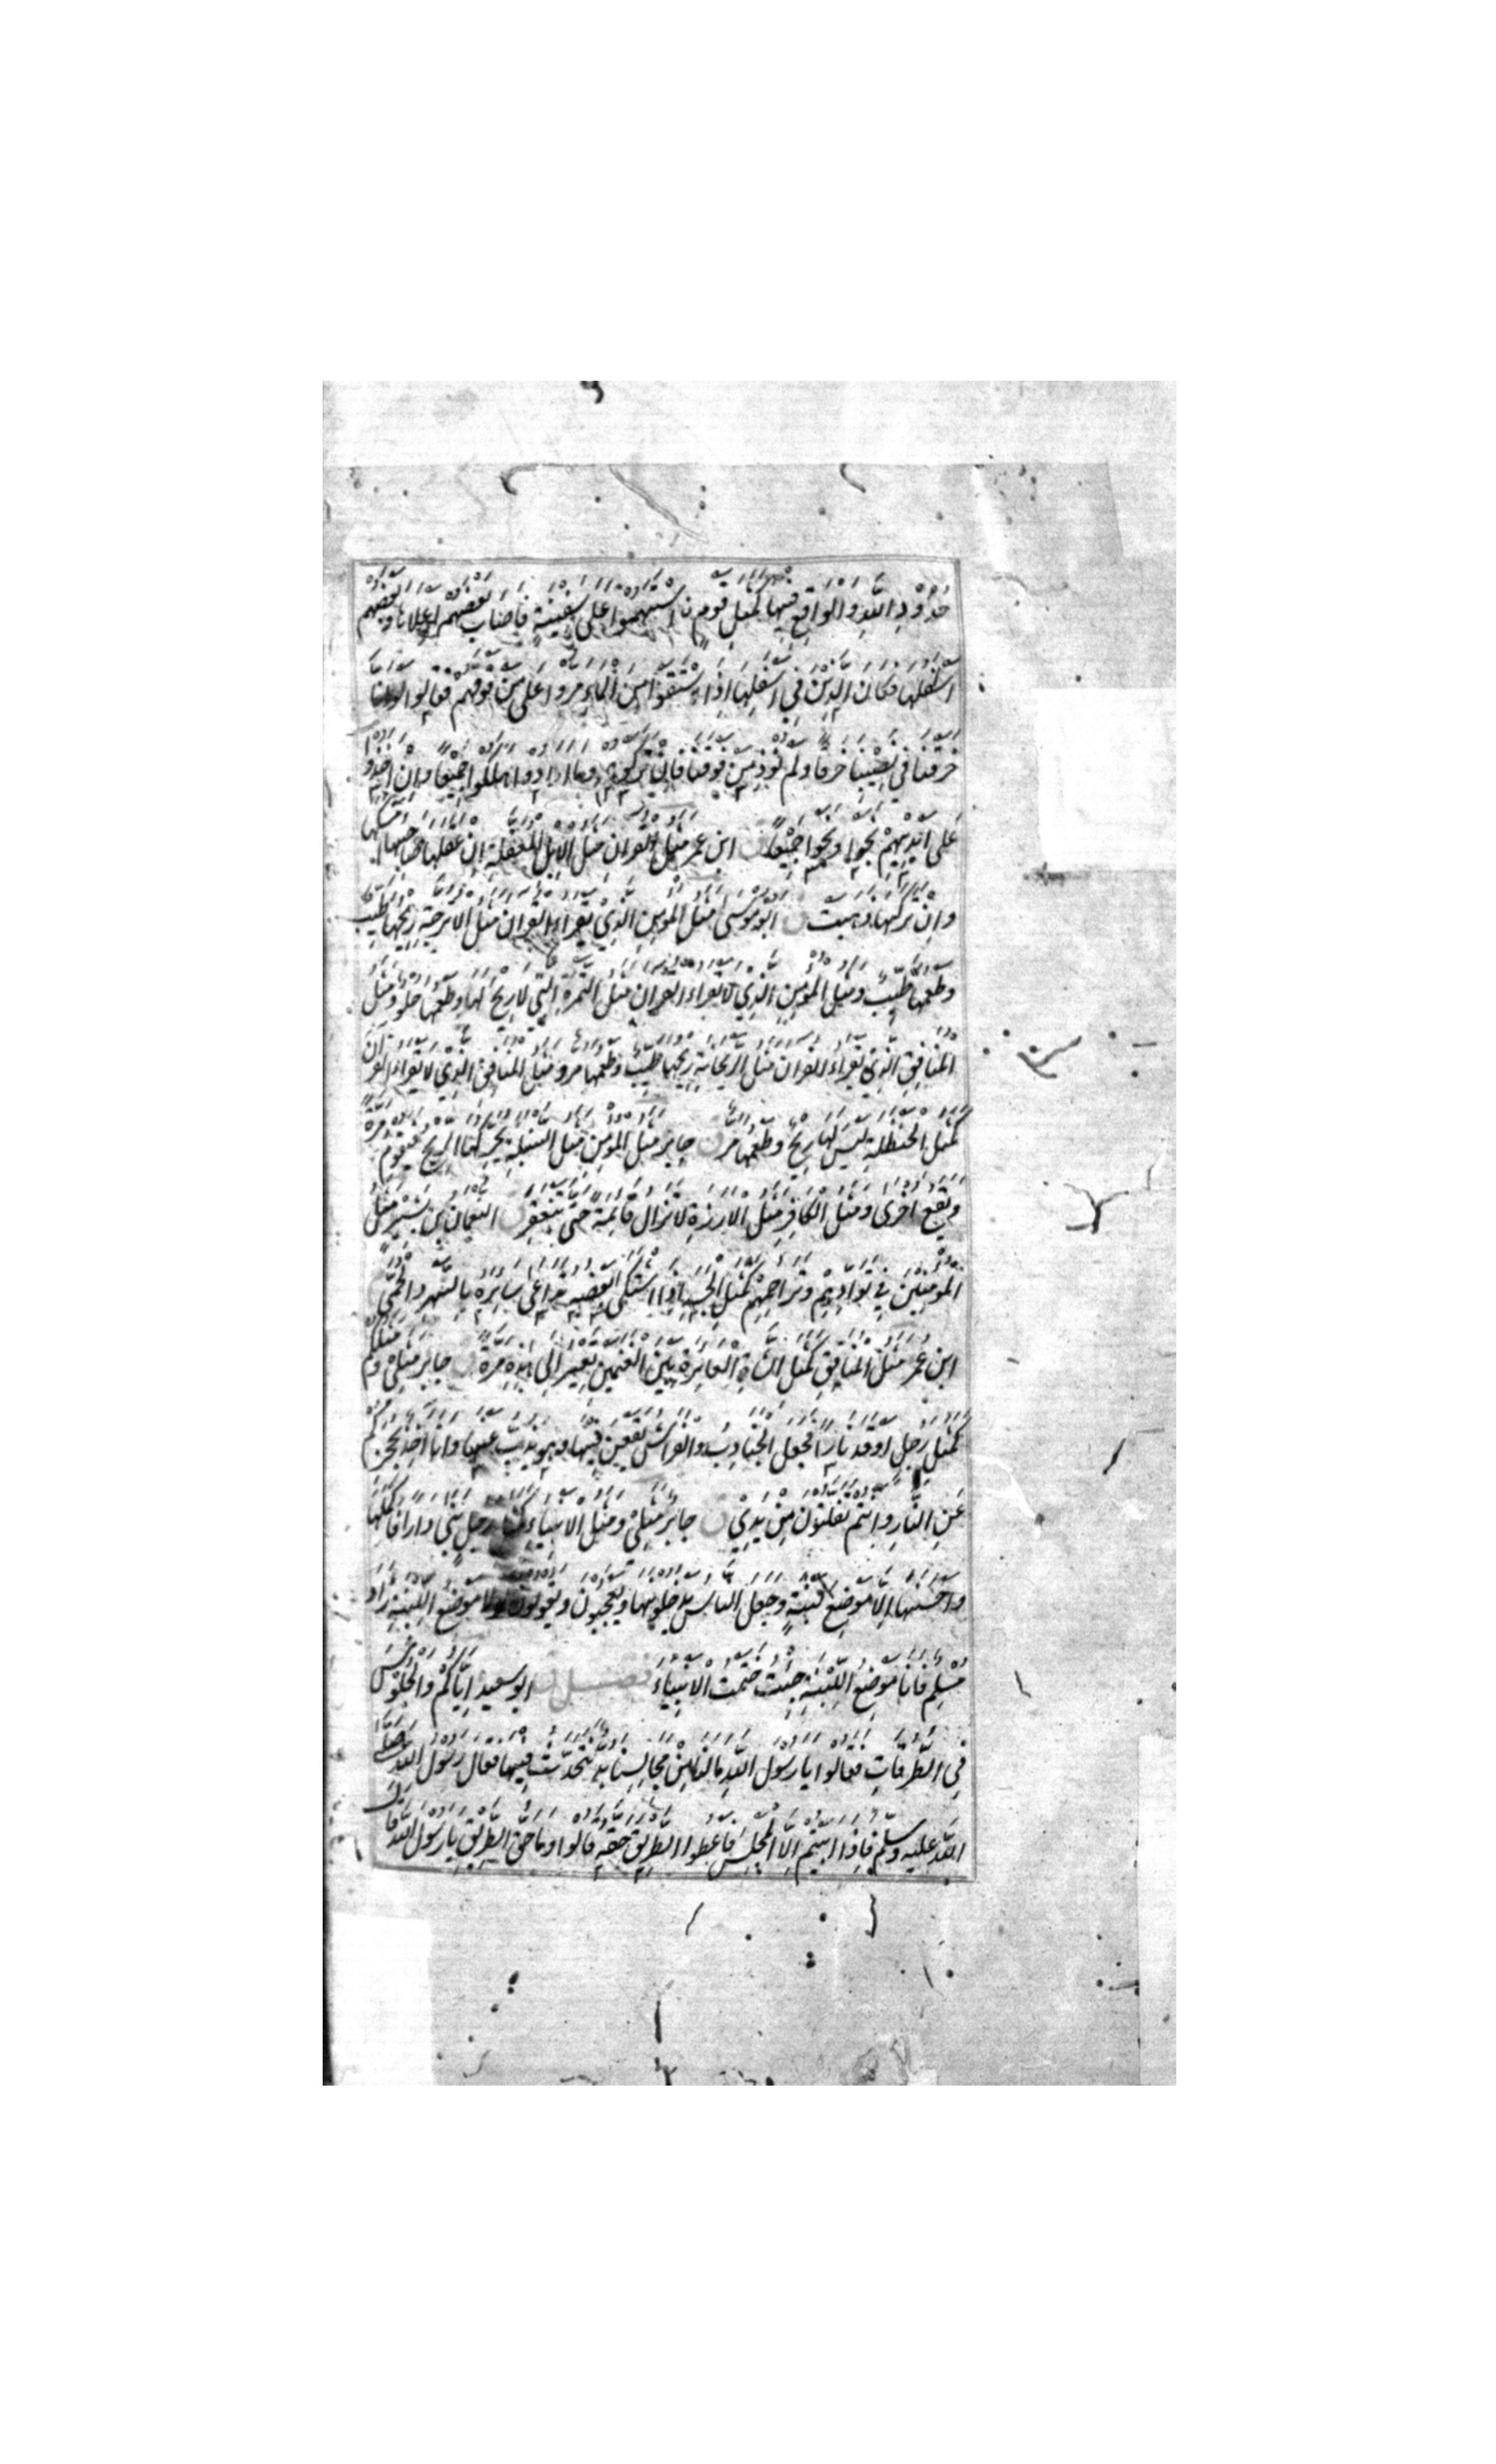 حدود الله والواقع فيها كمثل قوم ن استهموا على سفينة فاصاب بعضهم اعلاها وبعضهم
اسفلها فكان الذين في اسفلها اذا استقوا من الماء مروا على من فوقهم فقالوا لو انا
خرقنا في نصيبنا خرقا ولم نوذ من فوقنا فان تركوهم وما ارادوا هلكوا جميعا وان اخذوا
على ايديهم نجوا ونجوا جميعا ق ابن عمر مثل القران مثل الابل المعقلة ان عقلها صاحبها امسكها
وان تركها ذهبت ق ابو موسى مثل المومن الذي يقراء القران مثل الاترجة ريحها طيب
وطعمها طيب ومثل المومن الذي لا يقراء القران مثل التمرة التي لا ريح لها وطعمها حلو ومثل
المنافق الذي يقراء القران مثل الريحانة ريحها طيب وطعمها مر ومثل المنافق الذي لا يقراء القران
كمثل الحنظلة ليس لها ريح وطعمها مر ق جابر مثل المومن مثل السنبلة يحركها الريح فتقوم مرة
وتقع اخرى ومثل الكافر مثل الارزة لا تزال قائمة حتى تنقعر ق النعمان بن بشير مثل
المومنين في توادهم وتراحمهم كمثل الجسد اذا اشتكى بعضه تداعى سايره بالسهر والحمى
ابن عمر مثل المنافق كمثل الشاة العائرة بين الغنمين تعير الى هذه مرة ق جابر مثلي ومثلكم
كمثل رجل اوقد نارا فجعل الجنادب والفراش يقعن فيها وهو يذبهن عنها وانا اخذ بحجزكم
عن النار وانتم تفلتون من يدي ق جابر مثلي ومثل الانبياء كمثل رجل بنى دارا فاكملها
واحسنها الا موضع لبنة وجعل الناس يدخلونها ويعجبون ويقولون لولا موضع اللبنة زاد
مسلم فانا موضع اللبنة جئت ختمت الانبياء فصل ق ابو سعيد اياكم والجلوس
في الطرقات فقالوا يا رسول الله مالنا من مجالسنا بد نتحدث فيها فقال رسول الله صلى
الله عليه وسلم فاذا ابيتم الا المجلس فاعطوا الطريق حقه قالوا وما حق الطريق يا رسول الله قال